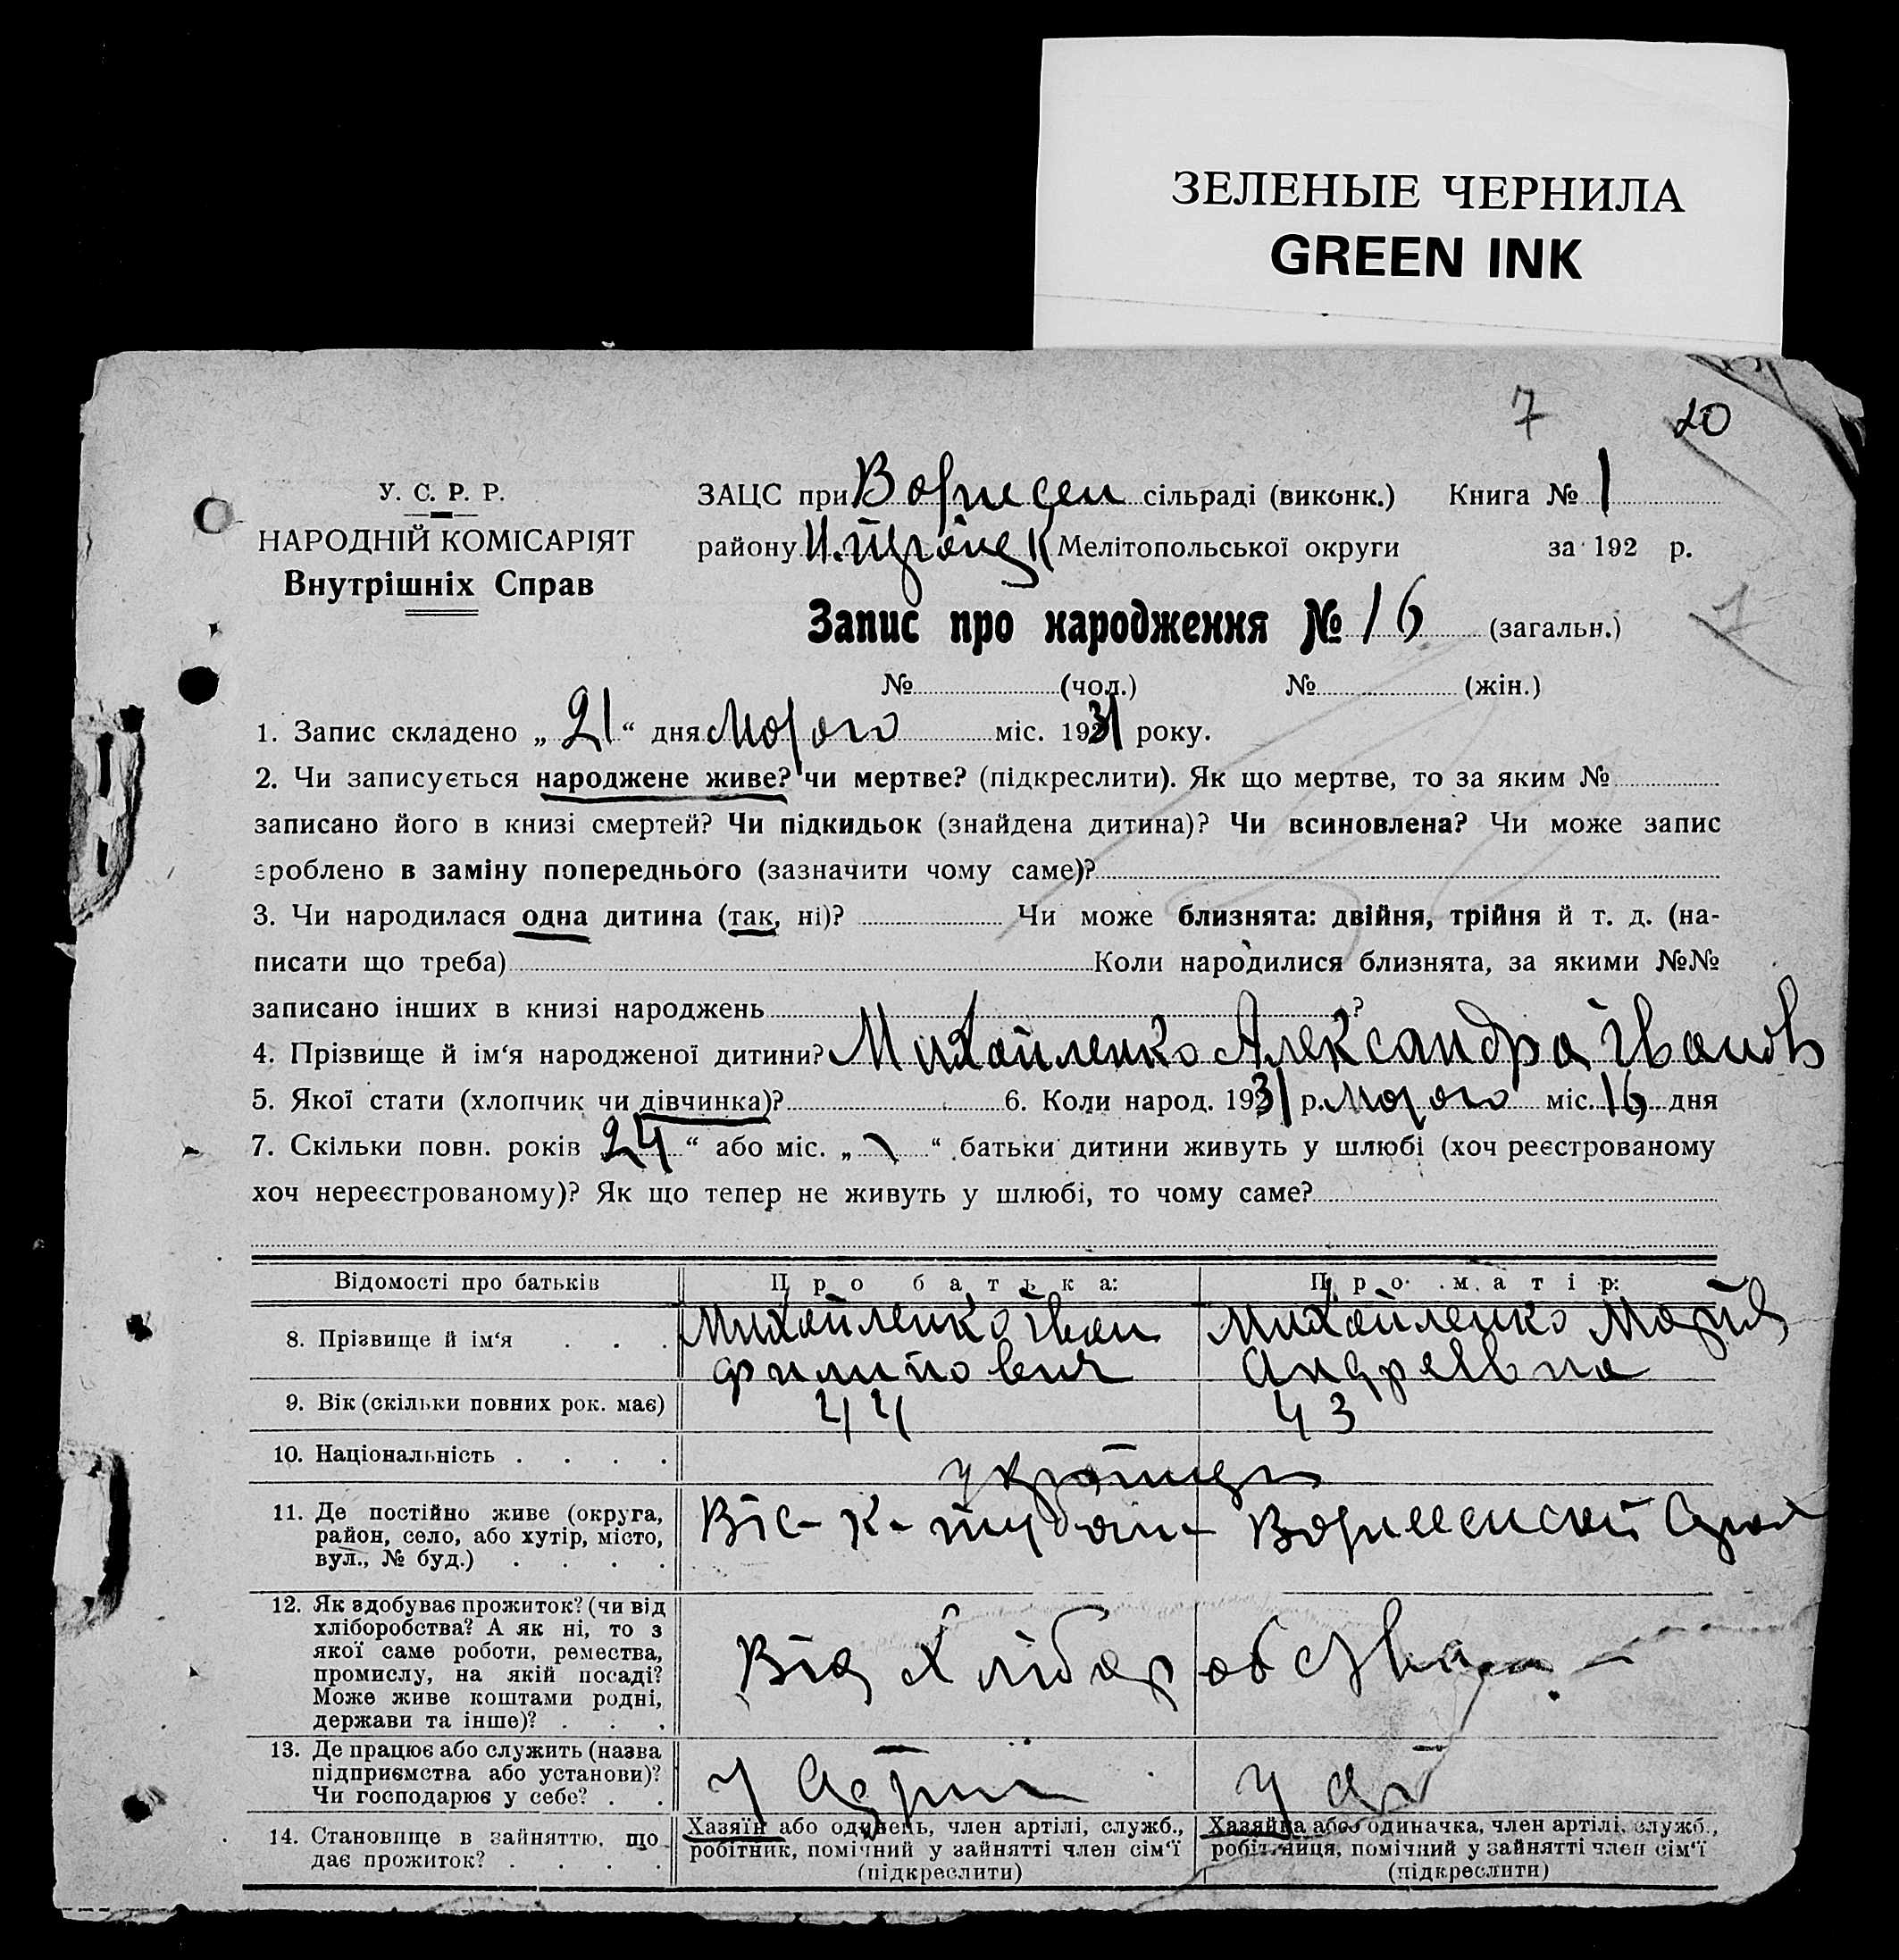 ЗЕЛЕНЫЕ ЧЕРНИЛА
GREEN INK
7 20
У. С. Р. Р.
НАРОДНІЙ КОМІСАРІЯТ
Внутрішніх Справ
ЗАЦС при сільраді (виконк.) Книга № 1
району Мелітопольської округи за 192 р.
Запис про народження № 16 (загальн.)
1
№ (чол.) № (жін.)
1. Запис складено „ 21 “ дня міс. 1931 року.
2. Чи записується народжене живе? чи мертве? (підкреслити). Як що мертве, то за яким №
записано його в книзі смертей? Чи підкидьок (знайдена дитина)? Чи всиновлена? Чи може запис
зроблено в заміну попереднього (зазначити чому саме)?
3. Чи народилася одна дитина (так, ні)? Чи може близнята: двійня, трійня й т. д. (на-
писати що треба) Коли народилися близнята, за якими №№
записано інших в книзі народжень ?
4. Прізвище й ім‘я народженої дитини? Михайленко Александра Іванов
5. Якої стати (хлопчик чи дівчинка)? 6. Коли народ. 1931 р. міс. 16 дня
7. Скільки повн. років 24 “ або міс. „ “ батьки дитини живуть у шлюбі (хоч реєстрованому
хоч нереєстрованому)? Як що тепер не живуть у шлюбі, то чому саме?
Відомості про батьків Про батька: Про матір:
8. Прізвище й ім‘я Михайленко Іван Филипович Михайленко Марія Андреевна
9. Вік (скільки повних рок. має) 44 43
10. Національність українці
11. Де постійно живе (округа,
район, село, або хутір, місто,
вул., № буд.)
12. Як здобуває прожиток? (чи від
хліборобства? А як ні, то з
якої саме роботи, ремества,
промислу, на якій посаді?
Може живе коштами родні,
держави та інше)?
Від хліборобства
13. Де працює або служить (назва
підприємства або установи)?
Чи господарює у себе?
У У
14. Становище в зайняттю, що
дає прожиток?
Хазяїн або одинець, член артілі, служб.,
робітник, помічний у зайнятті член сім‘ї
(підкреслити)
Хазяйка або одиначка, член артілі, служб.,
робітниця, помічний у зайнятті член сім‘ї
(підкреслити)